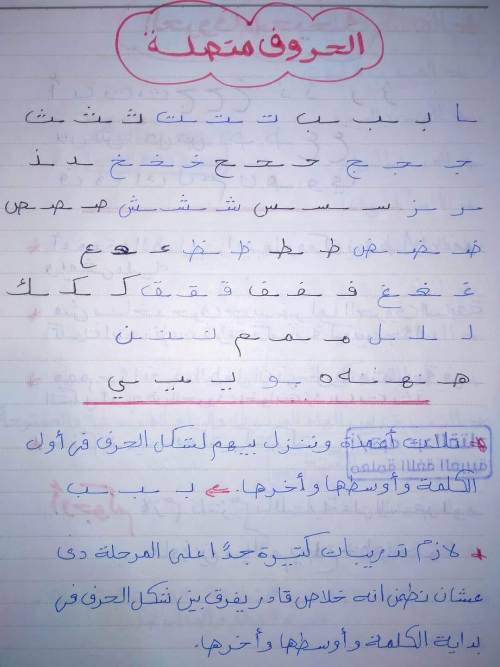 الحروف متصلة
ـا بـ ـبـ ـب تـ ـتـ ـت ثـ ـثـ ـث
جـ ـجـ ـج حـ ـحـ ـح خـ ـخـ ـخ ـد ـذ
ـر ـز سـ ـسـ ـس شـ ـشـ ـش صـ ـصـ ـص
ضـ ـضـ ـض ط ـط ظ ـظ عـ ـعـ ع
غـ ـغـ غ فـ ـفـ ـف قـ ـقـ ـق كـ ـكـ ـك
لـ ـلـ ـل مـ ـمـ ـم نـ ـنـ ـن
هـ ـهـ ـه ه ـو يـ ـيـ ـي
أعمدة وننزل بيهم لشكل الحرف في أول
الكلمة وأوسطها وأخرها. بـ ـبـ ـب
لازم تدريبات كتيرة جدًا على المرحلة دى
عشان نطمن انه خلاص قادر يفرق بين شكل الحرف في
بداية الكلمة وأوسطها وأخرها.